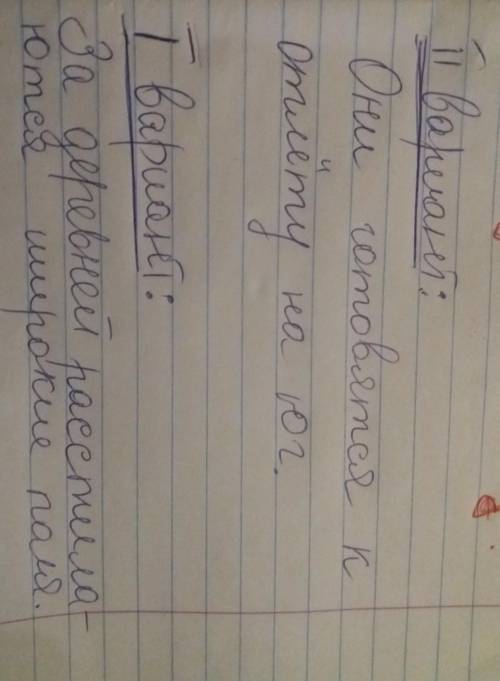 II вариант:
Они готовятся к
отлёту на юг.
I вариант:
За деревней расстила-
ются широкие паля.